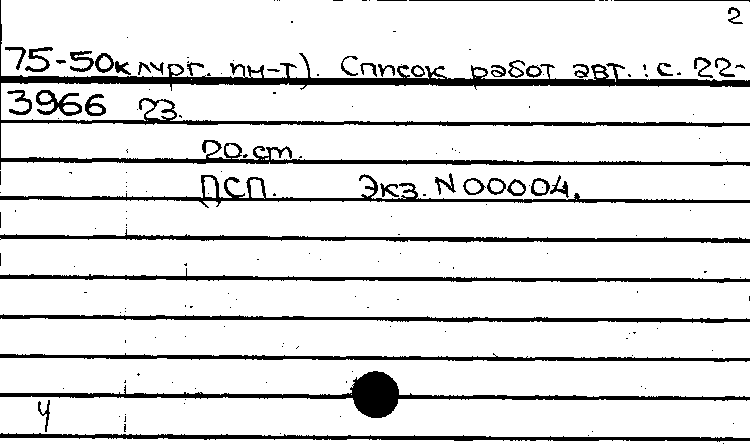 2
75-50к лург. ин-т). Список работ авт.: с. 22-
3966 23.
20.cm.
ПСП. Экз. N 00004.
4